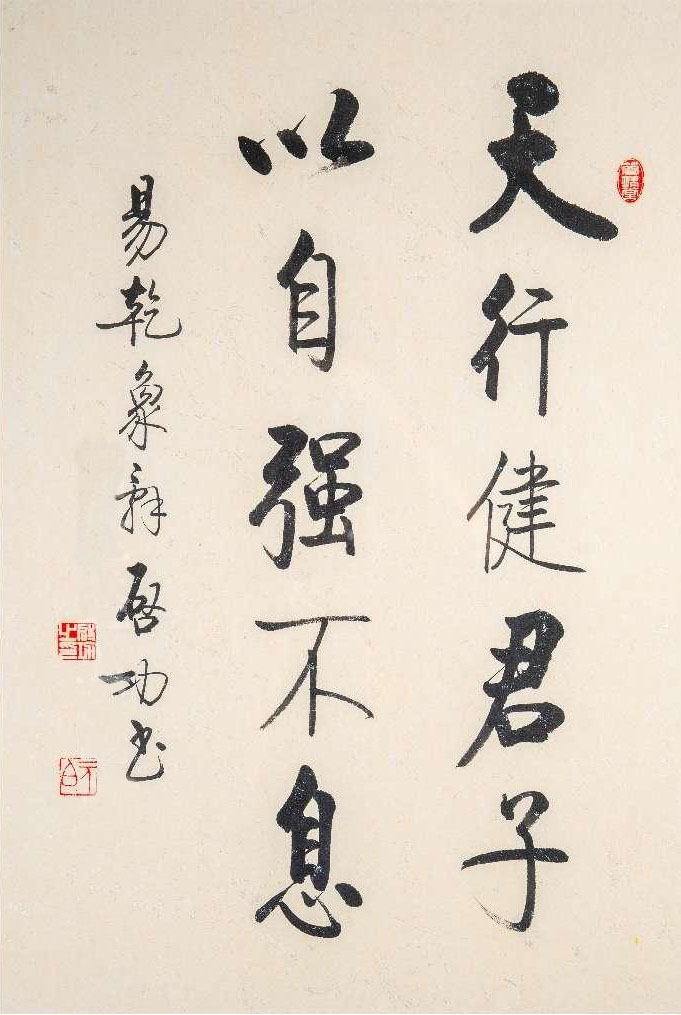 天行健君子
以自强不息
易乾象辞启功书